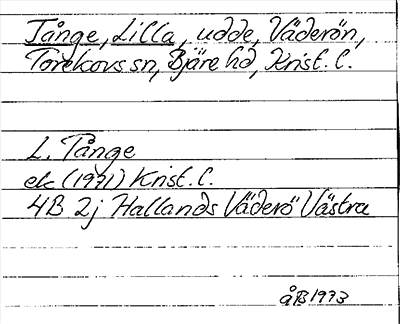 Tånge, Lilla, udde, Väderön,
Torekovs sn, Bjäre hd, Krist. l.
L. Tånge
ek (1971) Krist. l.
4B 2j Hallands Väderö Västra
åB 1973